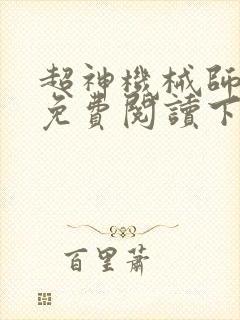 超神機械師
免費閱讀下
百里蕭